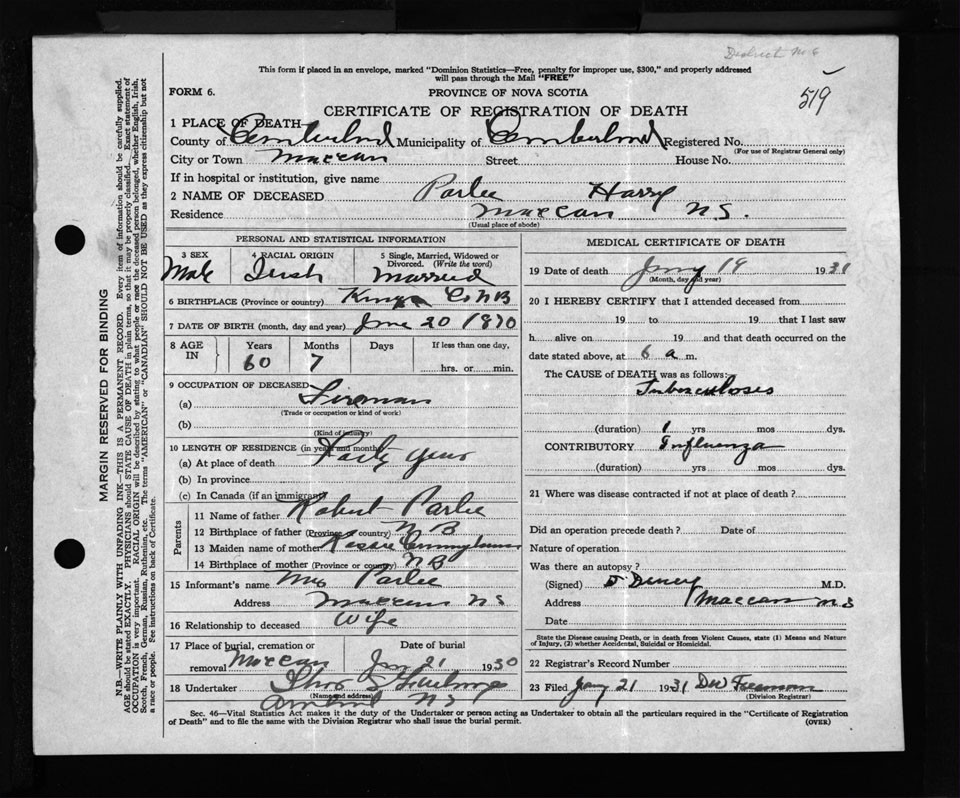 District No 6
519
This form if placed in an envelope, marked "Dominion Statistics—Free, penalty for improper use, $300," and properly addressed
will pass through the Mail "FREE"
FORM 6.
PROVINCE OF NOVA SCOTIA
CERTIFICATE OF REGISTRATION OF DEATH
1 PLACE OF DEATH—
County of Cumberland Municipality of Cumberland Registered No.
(For use of Registrar General only)
City or Town Maccan Street House No.
If in hospital or institution, give name
2 NAME OF DECEASED Parlee Harry
Residence Maccan N.S.
(Usual place of abode)
PERSONAL AND STATISTICAL INFORMATION
3 SEX Male
4 RACIAL ORIGIN Irish
5 Single, Married, Widowed or Divorced. (Write the word) Married
6 BIRTHPLACE (Province or country) Kings Co NB
7 DATE OF BIRTH (month, day and year) June 20 1870
8 AGE IN Years 60 Months 7 Days If less than one day, hrs. or min.
9 OCCUPATION OF DECEASED
(a) Fireman
(Trade or occupation or kind of work)
(b)
(Kind of industry)
10 LENGTH OF RESIDENCE (in years and months)
(a) At place of death Forty years
(b) In province
(c) In Canada (if an immigrant)
Parents
11 Name of father Robert Parlee
12 Birthplace of father (Province or country) N B
13 Maiden name of mother Cunningham
14 Birthplace of mother (Province or country) N B
15 Informant's name Mrs Parlee
Address Maccan N S
16 Relationship to deceased Wife
17 Place of burial, cremation or removal Maccan
Date of burial Jan 21 1930
18 Undertaker
(Name and address)
Amherst N S
MEDICAL CERTIFICATE OF DEATH
19 Date of death Jany 19 1931
(Month, day and year)
20 I HEREBY CERTIFY that I attended deceased from
19 to 19 that I last saw
h alive on 19 and that death occurred on the
date stated above, at 6 a m.
The CAUSE of DEATH was as follows:
Tuberculosis
(duration) 1 yrs mos dys.
CONTRIBUTORY Influenza
(duration) yrs mos dys.
21 Where was disease contracted if not at place of death?
Did an operation precede death? Date of
Nature of operation
Was there an autopsy?
(Signed) M.D.
Address Maccan N S
Date
State the Disease causing Death, or in death from Violent Causes, state (1) Means and Nature
of Injury, (2) whether Accidental, Suicidal or Homicidal.
22 Registrar's Record Number
23 Filed Jany 21 1931 DW Freeman
(Division Registrar)
Sec. 46—Vital Statistics Act makes it the duty of the Undertaker or person acting as Undertaker to obtain all the particulars required in the "Certificate of Registration
of Death" and to file the same with the Division Registrar who shall issue the burial permit.
(OVER)
MARGIN RESERVED FOR BINDING
N.B.—WRITE PLAINLY WITH UNFADING INK—THIS IS A PERMANENT RECORD. Every item of information should be carefully supplied.
AGE should be stated EXACTLY. PHYSICIANS should STATE CAUSE OF DEATH in plain terms, so that it may be properly classified. Exact statement of
OCCUPATION is very important. RACIAL ORIGIN will be described by stating to what people or race the deceased person belonged, whether English, Irish,
Scotch, French, German, Russian, Ruthenian, etc. The terms "AMERICAN" or "CANADIAN" SHOULD NOT BE USED as they express citizenship but not
a race or people. See instructions on back of Certificate.